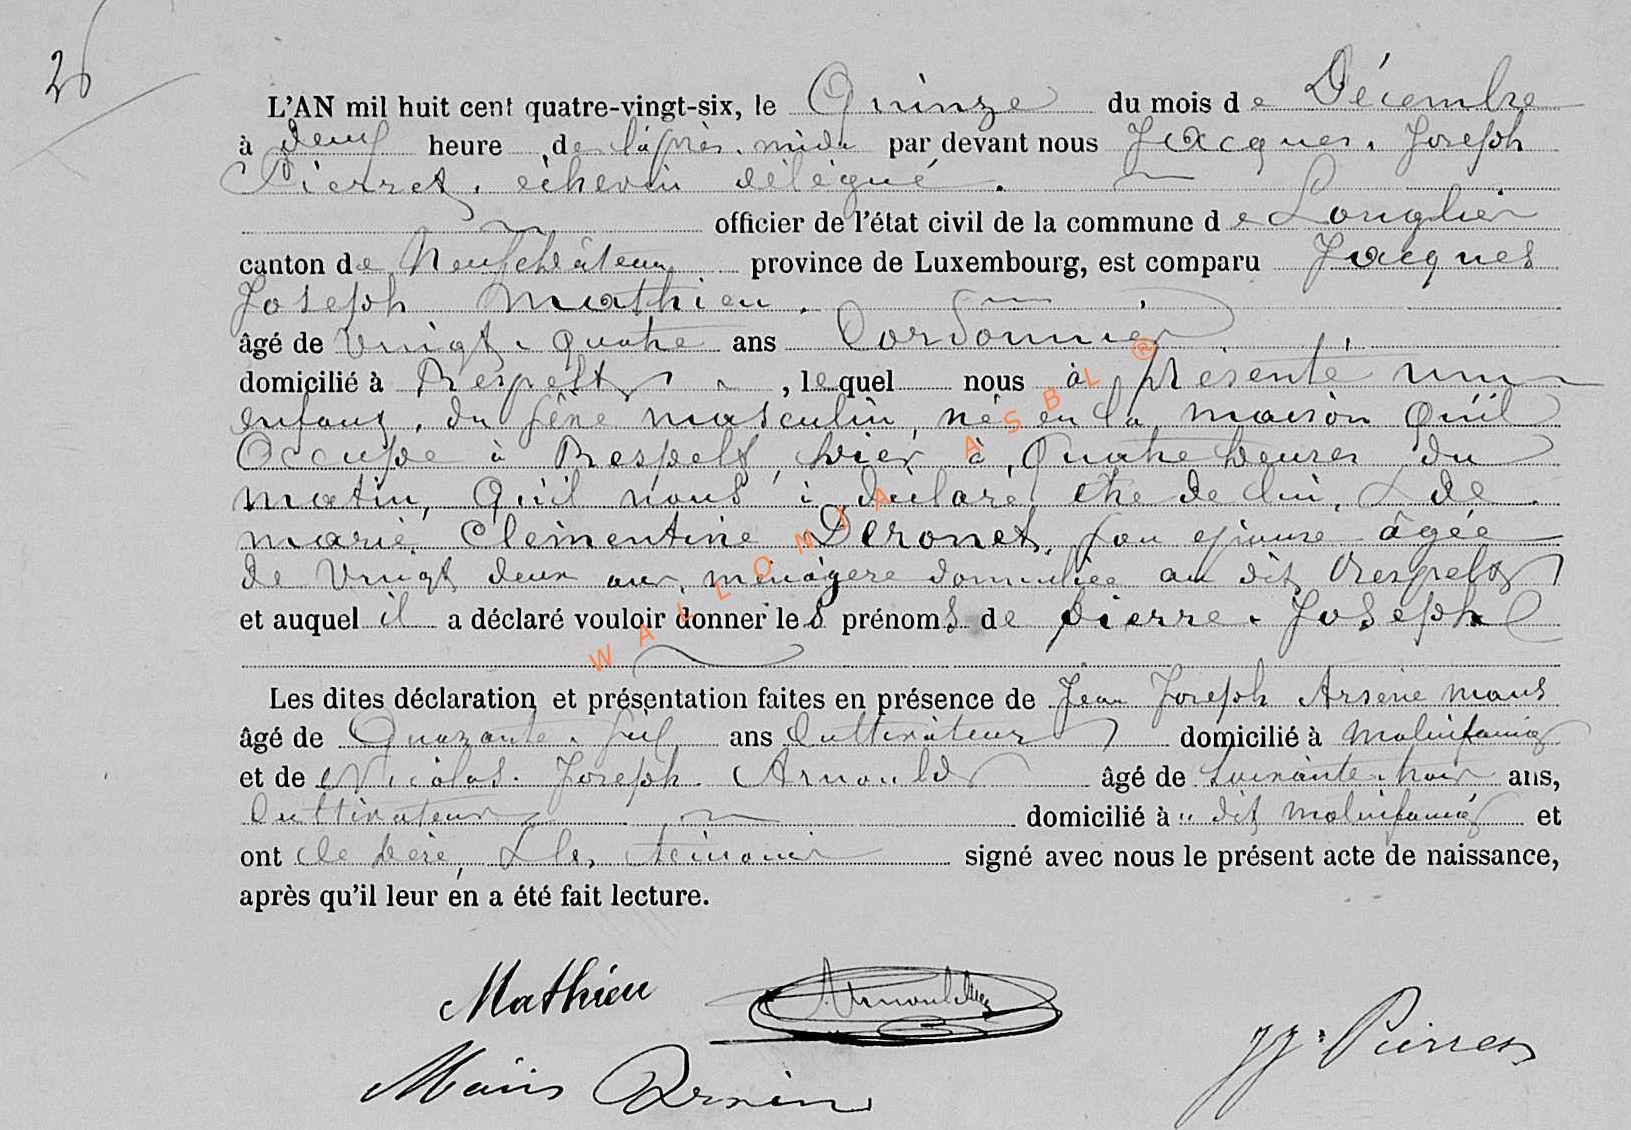 26
L'AN mil huit cent quatre-vingt-six, le Quinze du mois de Décembre
à deux heure de l'après midi par devant nous Jacques. Joseph
Pierret. échevin délégué.
officier de l'état civil de la commune de Longlier
canton de Neufchâteau province de Luxembourg, est comparu Jacques
Joseph Mathieu.
âgé de Vingt. Quatre ans Cordonnier
domicilié à Respelt, lequel nous à présenté un
enfant. du sexe masculin, né en la maison Qu'il
Occupe à Respelt, hier à Quatre heures du
matin, Qu'il nous à déclaré être de lui, & de
marie Clémentine Deronet, son épouse âgée
de Vingt deux ans, ménagère domiciliée au dit Respelt
et auquel il a déclaré vouloir donner les prénoms de pierre. Joseph
Les dites déclaration et présentation faites en présence de Jean Joseph Arsène maus
âgé de Quarante. ans Cultivateur domicilié à molinfaing
et de Nicolas. Joseph. Arnould âgé de Soixante. trois ans,
Cultivateur domicilié à " dit molinfaing et
ont le père, & les témoins signé avec nous le présent acte de naissance,
après qu'il leur en a été fait lecture.
Mathieu Arnould
Maus Arsène JJ. Pierret
WALLONIA ASBL ®